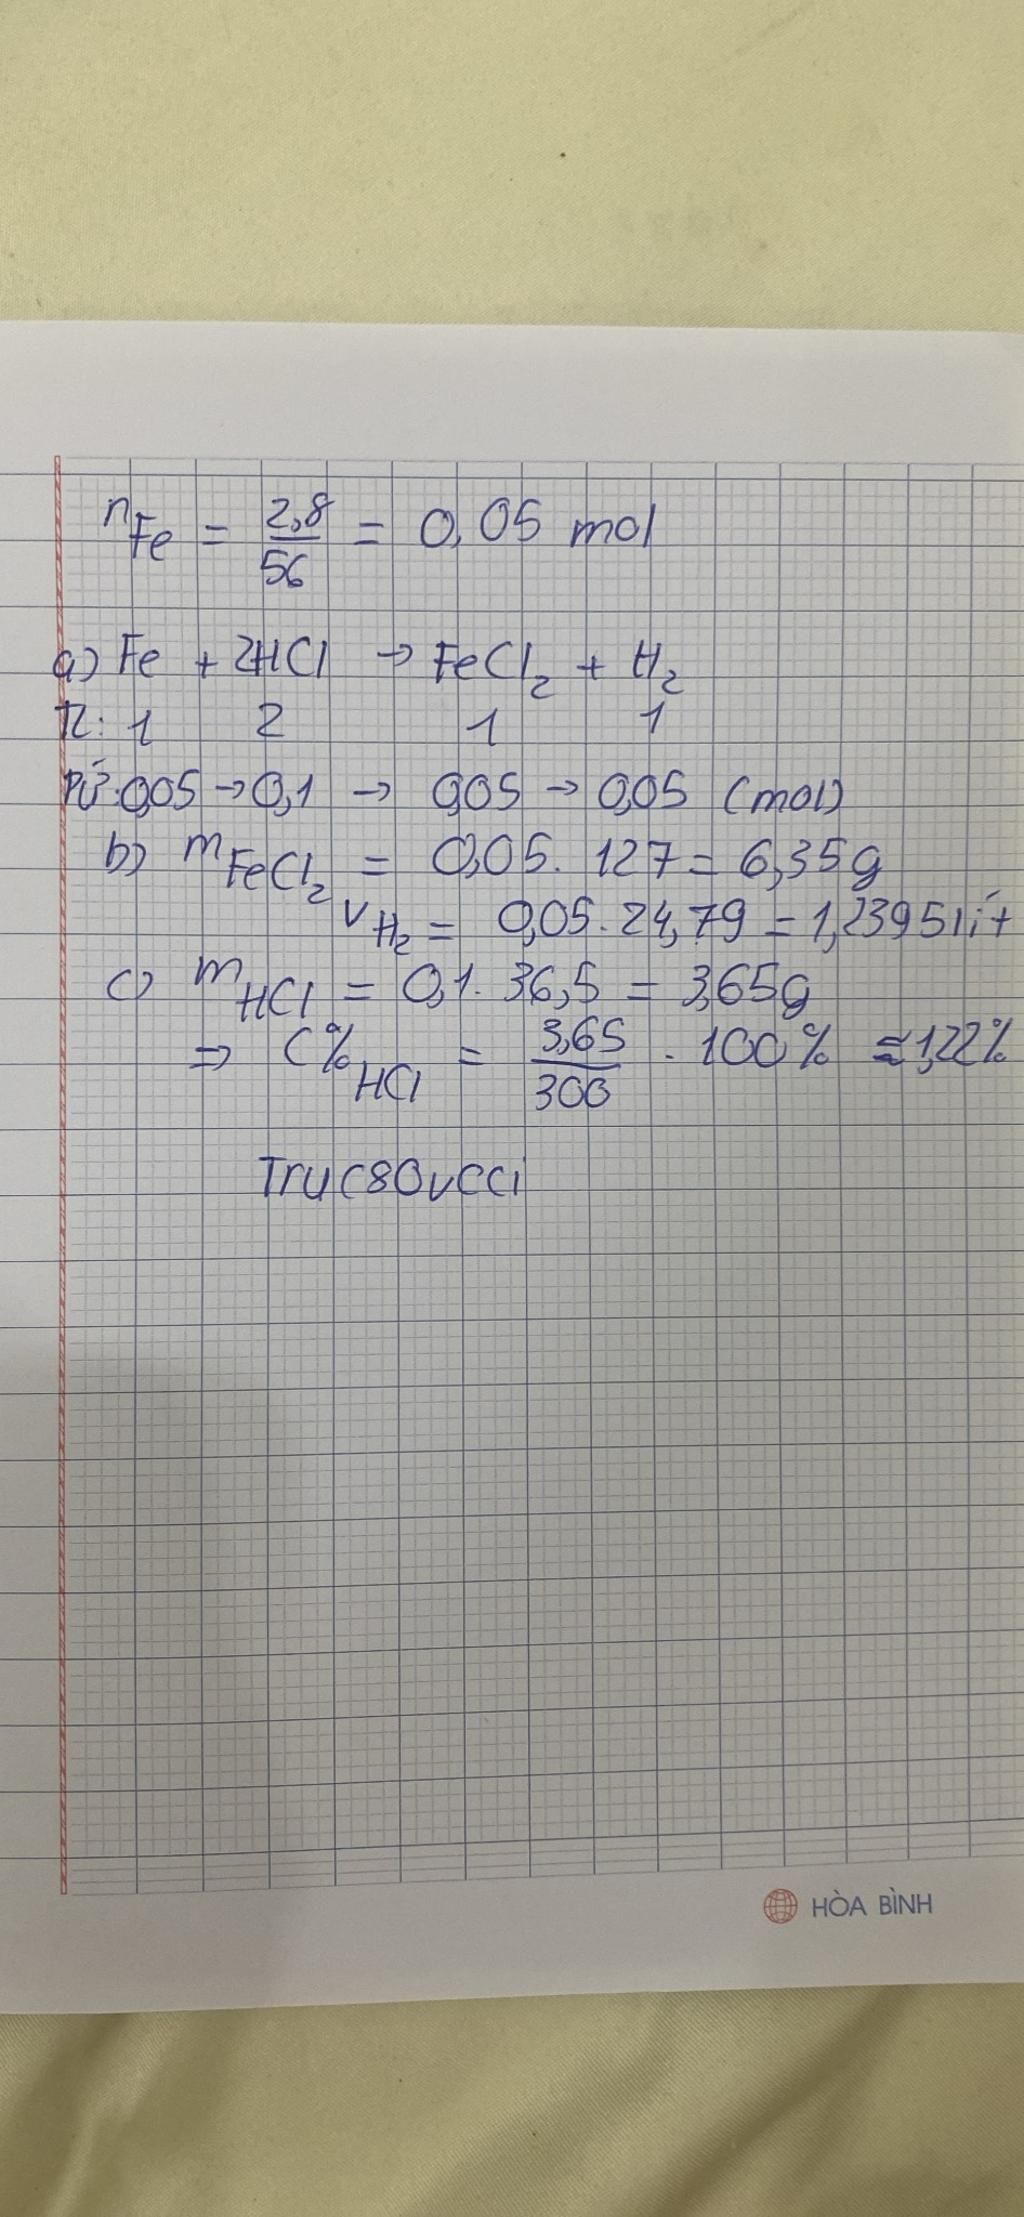 nFe = 2,8/56 = 0,05 mol
a) Fe + 2HCl → FeCl2 + H2
TL: 1 2 1 1
PỨ: 0,05 → 0,1 → 0,05 → 0,05 (mol)
b) mFeCl2 = 0,05. 127 = 6,35g
VH2 = 0,05. 24,79 = 1,2395 lít
c) mHCl = 0,1. 36,5 = 3,65g
⇒ C%HCl = 3,65/300 . 100% ≈ 1,22%
Truc8Ovcci
HÒA BÌNH